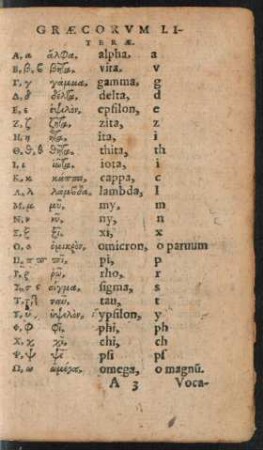 GRÆCORVM LI-
TERÆ.
Α, α ἄλφα. alpha. a
Β, β, ϐ βῆτα. vita. v
Γ, γ γάμμα. gamma. g
Δ, δ δέλτα. delta, d
Ε, ε ἐψιλὸν. epsilon, e
Ζ, ζ ζῆτα. zita, z
Η, η ἦτα. ita, i
Θ, θ, ϑ θῆτα. thita, th
Ι, ι ἰῶτα. iota, i
Κ, κ κάππα. cappa, c
Λ, λ λάμβδα. lambda, l
Μ, μ μῦ. my, m
Ν, ν νῦ. ny, n
Ξ, ξ ξῖ. xi, x
Ο, ο ὀμικρὸν. omicron, o paruum
Π, π ϖ πῖ. pi, p
Ρ, ρ ῥῶ. rho, r
Σ, σ ς σίγμα. sigma, s
Τ, τ ταῦ. tau, t
Υ, υ ὐψιλὸν. ypsilon, y
Φ, φ φῖ. phi, ph
Χ, χ χῖ. chi, ch
Ψ, ψ ψῖ psi ps
Ω, ω ὠμέγα. omega, o magnū.
A 3 Voca-